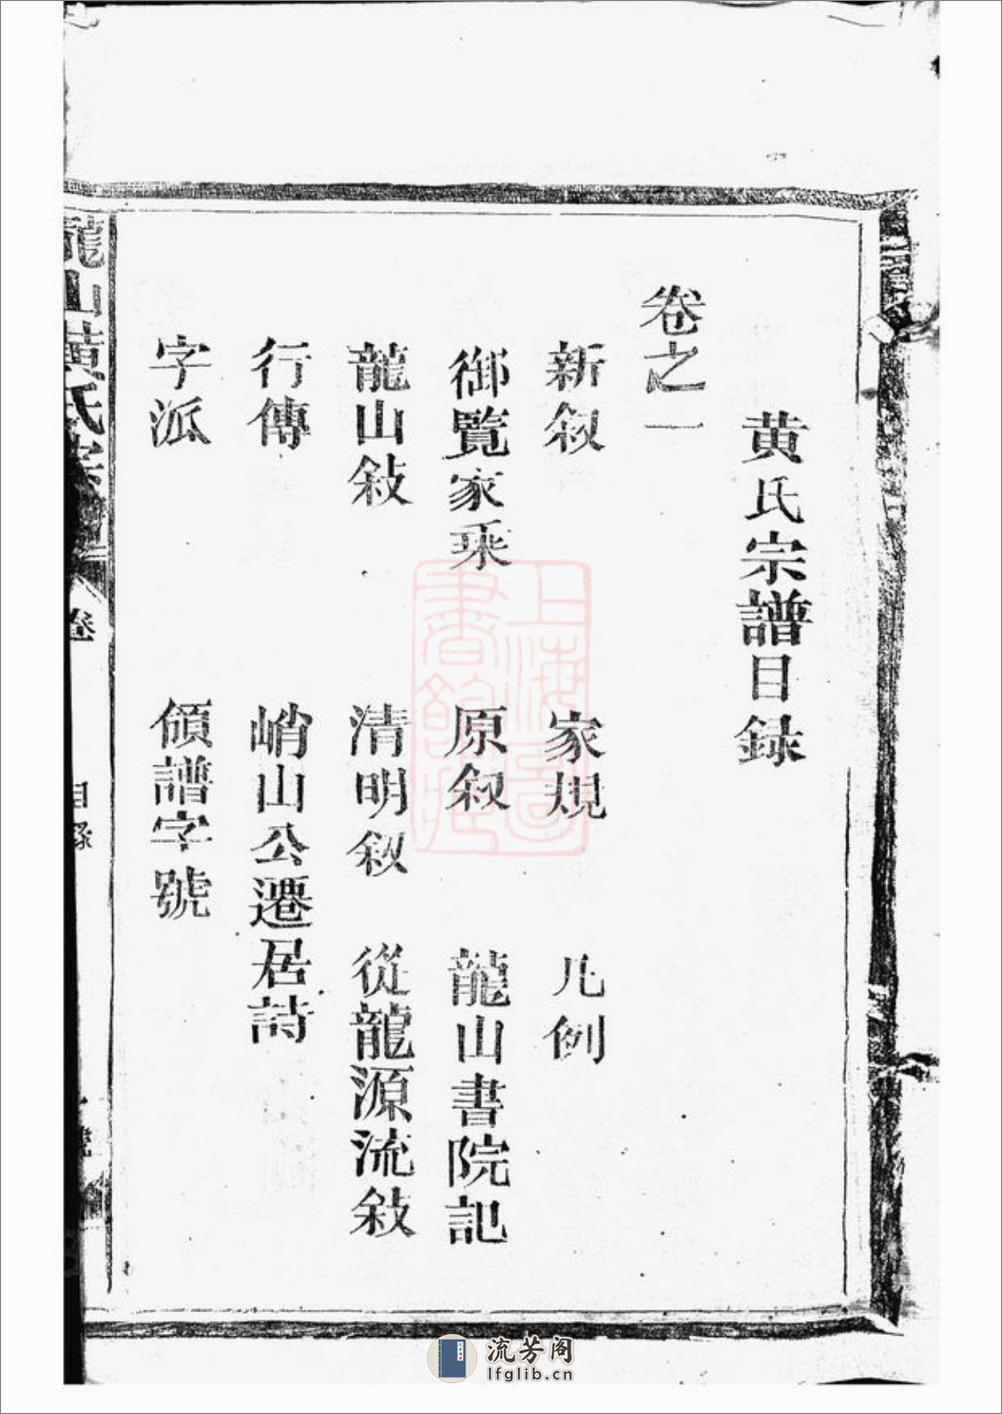 黄氏宗譜目録
卷之一
新叙 家規 凡例
御覽家乘 原叙 龍山書院記
龍山敍 清明叙 從龍源流敍
行傳 峭山公遷居詩
字派 領譜字號
龍山黄氏宗
卷
目録
號
上海圖書館藏
流芳阁
lfglib.cn